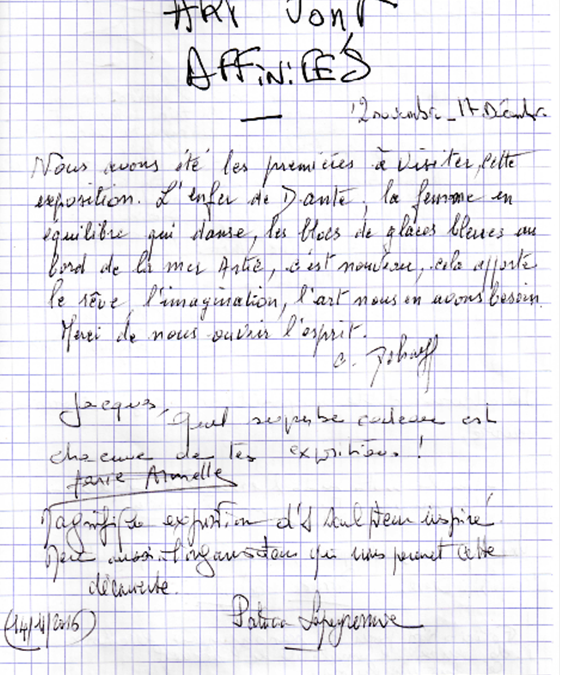 ART SONT
AFFINITÉS
12 novembre _ 17 Décembre
Nous avons été les premières à visiter, cette
exposition. L'enfer de Dante, la femme en
équilibre qui danse, les blocs de glaces bleues au
bord de la mer Artic, c'est nouveau, cela apporte
le rêve, l'imagination, l'art nous en avons besoin.
Merci de nous ouvrir l'esprit.
C.
Jacques, quel superbe cadeau est
chacune de tes expositions !
Armelle
Magnifique exposition d'1 sculpteur inspiré
Merci aussi à l'organisateur qui nous permet cette
découverte.
Patricia